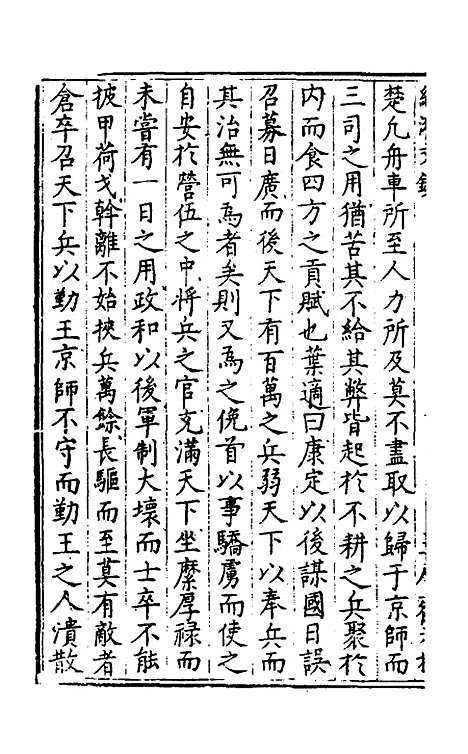 楚凡舟車所至人力所及莫不盡取以歸于京師而
三司之用猶苦其不給其弊皆起於不耕之兵聚於
内而食四方之貢賦也葉適曰康定以後謀國日誤
召募日廣而後天下有百萬之兵弱天下以奉兵而
其治無可為者矣則又為之俛首以事驕虜而使之
自安於營伍之中將兵之官充滿天下坐縻厚禄而
未嘗有一日之用政和以後軍制大壞而士卒不能
披甲荷戈斡離不始挾兵萬餘長驅而至莫有敵者
倉卒召天下兵以勤王京師不守而勤王之人潰散